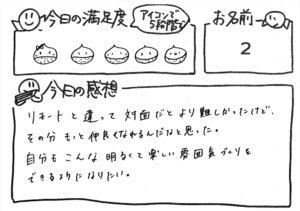 今日の満足度
アイコンで
5段階
お名前
2
今日の感想
リモートと違って対面だとより難しかったけど、
その分もっと仲良くなれるんだなと思った。
自分もこんな明るくて楽しい雰囲気づくりを
できるようになりたい。